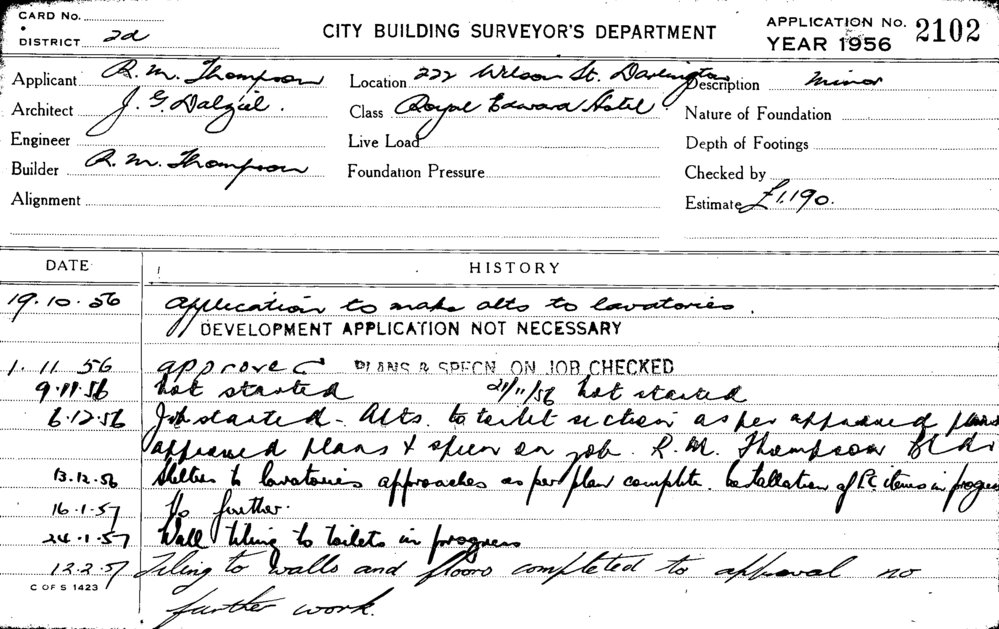 CARD No.
DISTRICT 2d
CITY BUILDING SURVEYOR'S DEPARTMENT
APPLICATION No. 2102
YEAR 1956
Applicant R. M. Thompson
Location 222 Wilson St. Darlington
Description Minor
Architect J. G. Dalziel.
Class Royal Edward Hotel
Nature of Foundation
Engineer
Live Load
Depth of Footings
Builder R. M. Thompson
Foundation Pressure
Checked by
Alignment
Estimate £1,190.
DATE HISTORY
19.10.56 Application to make alts to lavatories.
DEVELOPMENT APPLICATION NOT NECESSARY
1.11.56 approved PLANS & SPECN ON JOB CHECKED
9.11.56 Not started 21/11/56 Not started
6.12.56 Job started - Alts. to toilet section as per approved plans
approved plans & specn on job. R. M. Thompson Bldr
13.12.56 Shelter to lavatories approaches as per plan complete. Installation of P.C. items in progress
16.1.57 No further.
24.1.57 Wall tiling to toilets in progress
12.2.57 Tiling to walls and floors completed to approval no
C OF S 1423
further work.